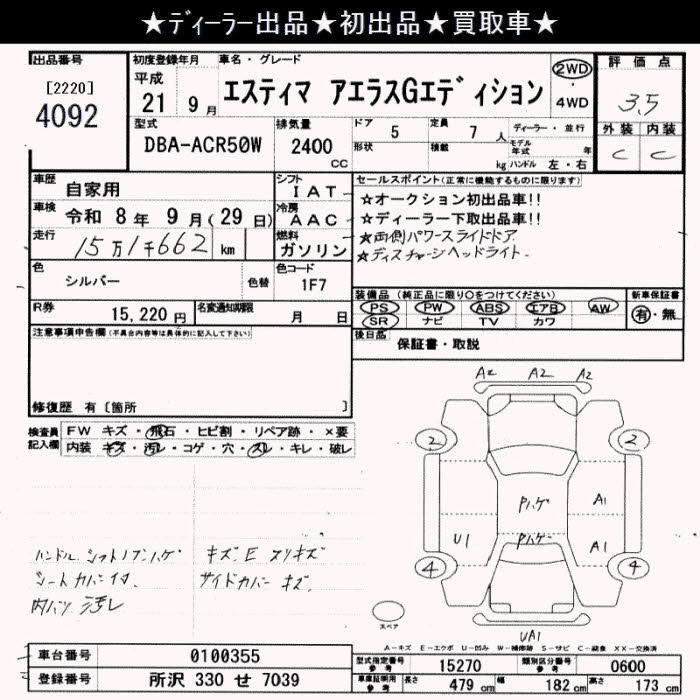 ★ディーラー出品★初出品★買取車★
出品番号
[2220]
4092
初度登録年月
平成
21 9月
車名・グレード
エスティマ アエラスGエディション
2WD
・
4WD
評価点
3.5
外装 内装
C C
型式
DBA-ACR50W
排気量
2400
CC
ドア 5
定員 7 人
ディーラー・並行
形状
積載 kg
モデル年式 年
ハンドル 左・右
車歴 自家用
シフト
IAT
車検 令和 8年 9月(29日)
冷房
AAC
走行 15万1千662 km
燃料
ガソリン
色 シルバー 色替
色コード
1F7
R券 15,220円
名変通知期限 月 日
セールスポイント(正常に機能するものに限ります)
★オークション初出品車!!
★ディーラー下取出品車!!
★両側パワースライドドア
★ディスチャージヘッドライト
装備品(純正品に限り○をつけてください)
PS PW ABS エアB AW
SR ナビ TV カワ
新車保証書
有・無
後日品
保証書・取説
注意事項申告欄(不具合内容等は具体的に記入して下さい)
修復歴 有〔箇所 〕
検査員記入欄
FW キズ・飛石・ヒビ割・リペア跡・×要
内装 キズ・汚レ・コゲ・穴・スレ・キレ・破レ
ハンドル シフトノブハゲ キズ E スリキズ
シートカバー イタ サイドカバー キズ
内ハリ 汚レ
A2 A2 A2
2 2
Pハゲ A1
U1 Pハゲ A1
4 4
スペア
UA1
A-キズ E-エクボ U-凹み W-補修跡 S-サビ C-腐食 XX-交換済
車台番号 0100355
登録番号 所沢 330 せ 7039
型式指定番号参考 15270
類別区分番号参考 0600
車庫証明用参考 長さ 479cm 幅 182cm 高さ 173cm